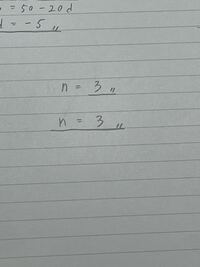 = 50 - 20d
d = -5 〃
n = 3 〃
n = 3 〃